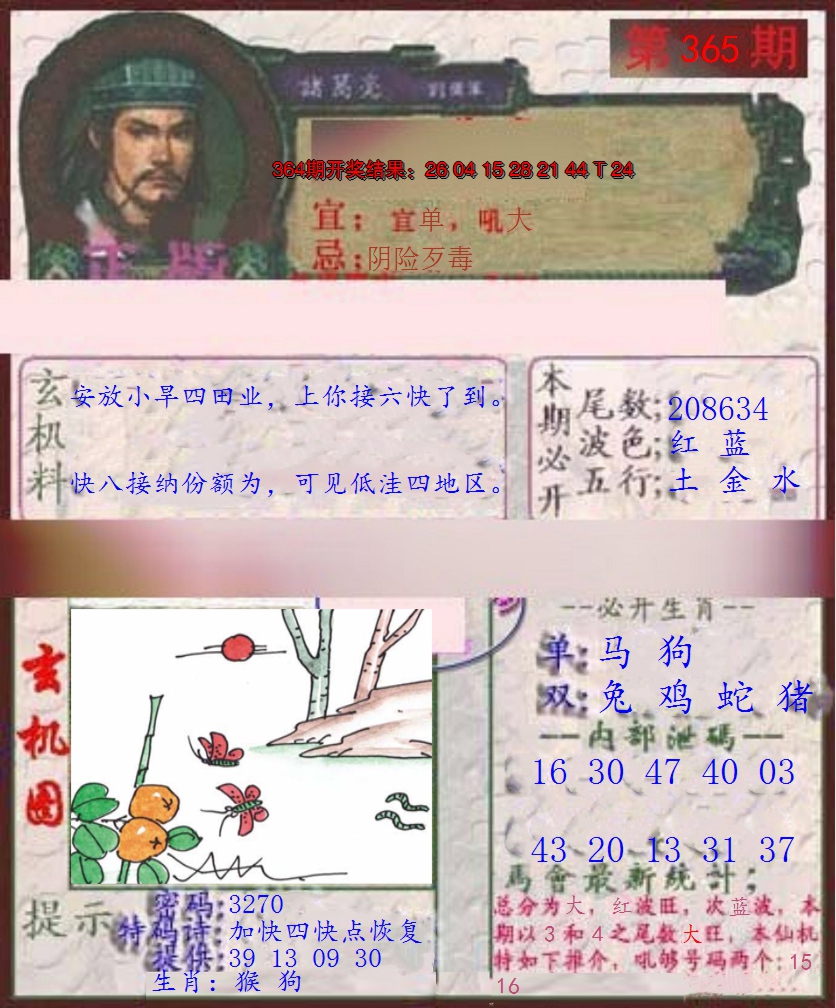 第 365 期
諸葛亮
364期开奖结果：26 04 15 23 21 44 T 24
宜；宜单，吼大
忌；阴险歹毒
正版
玄机料
安放小旱四田业，上你接六快了到。
快八接纳份额为，可见低洼四地区。
本期必开
尾数；208634
波色；红 蓝
五行；土 金 水
玄机图
--必开生肖--
单：马 狗
双：兔 鸡 蛇 猪
一内部泄碼一
16 30 47 40 03
43 20 13 31 37
馬會最新統計；
总分为大，红波旺，次蓝波，本
期以3和4之尾数大旺，本仙机
特如下推介，吼够号码两个：15
16
提示
密码：3270
特码诗：加快四快点恢复
提供：39 13 09 30
生肖：猴 狗